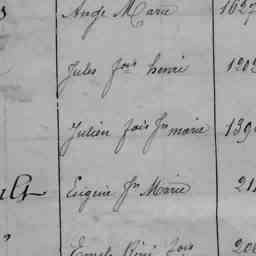 Ange Marie 1627
Jules fois henri 120
Julien fois Jn marie 139
Eugène Jn Marie 21
Emile Réné fois 200